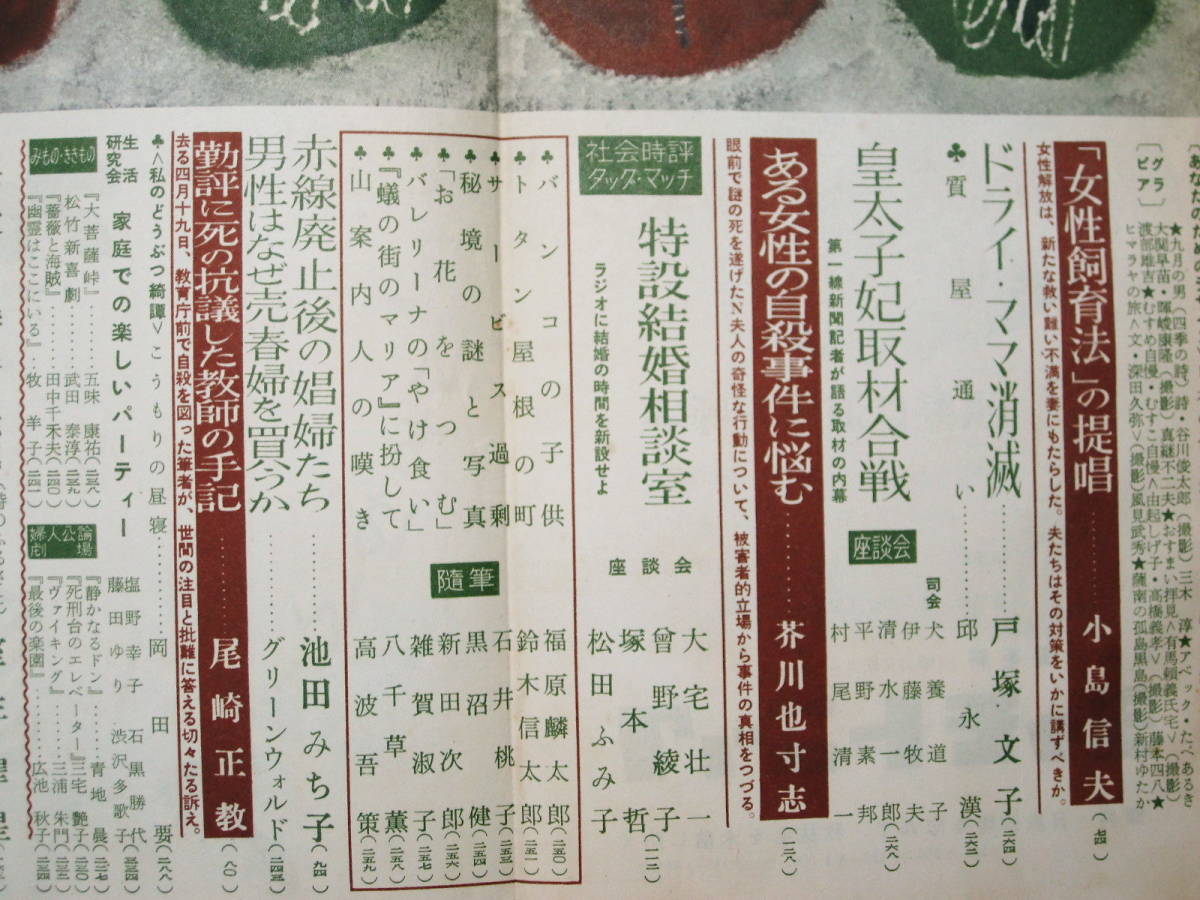 〔グラビア〕
★九月の男(四季の詩)詩・谷川俊太郎(撮影)三木淳★アベック・たべあるき
大関早苗・暉峻康隆(撮影)真継不二夫★おすまい拝見<有馬頼義氏宅>(撮影)
渡部雄吉★むすめ自慢・むすこ自慢<由起しげ子・高橋義孝>(撮影)藤本四八★
ヒマラヤの旅<文・深田久弥>(撮影)風見武秀★薩南の孤島黒島(撮影)新村ゆたか
「女性飼育法」の提唱………小島信夫(七四)
女性解放は、新たな救い難い不満を妻にもたらした。夫たちはその対策をいかに講ずべきか。
ドライ・ママ消滅………戸塚文子(二六四)
♣質屋通い………邱永漢(二六二)
皇太子妃取材合戦 座談会 司会 犬養道子 伊藤牧夫 清水一郎 平野素邦 村尾清一(二六八)
第一線新聞記者が語る取材の内幕
ある女性の自殺事件に悩む………芥川也寸志(一二八)
眼前で謎の死を遂げたN夫人の奇怪な行動について、被害者的立場から事件の真相をつづる。
社会時評タッグ・マッチ
特設結婚相談室 座談会 大宅壮一 曾野綾子 塚本哲 松田ふみ子(一一二)
ラジオに結婚の時間を新設せよ
随筆
♣バンコの子供 福原麟太郎(二五〇)
♣トタン屋根の町 鈴木信太郎(二五一)
♣サービス過剰 石井桃子(二五三)
♣秘境の謎と写真 黒沼健(二五四)
♣「お花をつつむ」 新田次郎(二五六)
♣バレリーナの「やけ食い」 雑賀淑子(二五七)
♣『蟻の街のマリア』に扮して 八千草薫(二五八)
♣山案内人の嘆き 高波吾策(二五九)
赤線廃止後の娼婦たち………池田みち子(九四)
男性はなぜ売春婦を買うか グリーンウォルド(二四三)
勤評に死の抗議した教師の手記………尾崎正教(八〇)
去る四月十九日、教育庁前で自殺を図った筆者が、世間の注目と批難に答える切々たる訴え。
♣<私のどうぶつ綺譚>こうもりの昼寝………岡田要(二八八)
生活研究会 家庭での楽しいパーティー 塩野幸子 石黒勝代 藤田ゆり 渋沢多歌子(三三四)
みもの・ききもの
『大菩薩峠』………五味康祐(二三八)
松竹新喜劇………武田泰淳(二三九)
『薔薇と海賊』………田中千禾夫(二四〇)
『幽霊はここにいる』…牧羊子(二四一)
婦人公論劇場
『静かなるドン』………青地晨(二二七)
『死刑台のエレベーター』三宅艶子(二三〇)
『ヴァイキング』………三浦朱門(二三二)
『最後の楽園』………広池秋子(二三四)